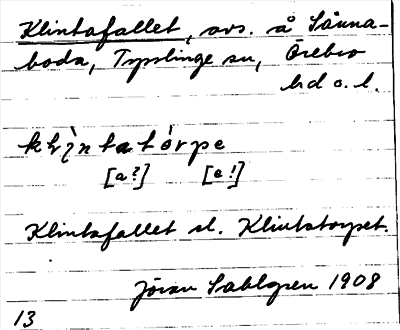 Klintafallet, avs. å Sånna-
boda, Tysslinge sn, Örebro
hd o. l.
klìntatórpe
[a?] [e!]
Klintafallet el. Klintatorpet.
Jöran Sahlgren 1908
13